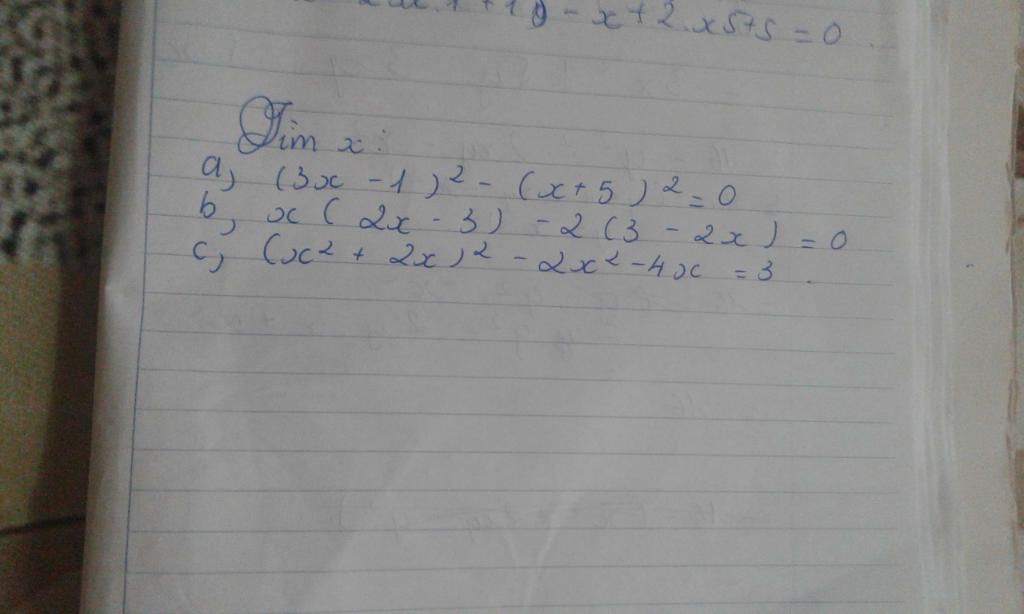 - x + 2.x5+5 = 0
Tìm x :
a, (3x - 1)² - (x + 5)² = 0
b, x ( 2x - 3) - 2 (3 - 2x) = 0
c, (x² + 2x)² - 2x² - 4x = 3